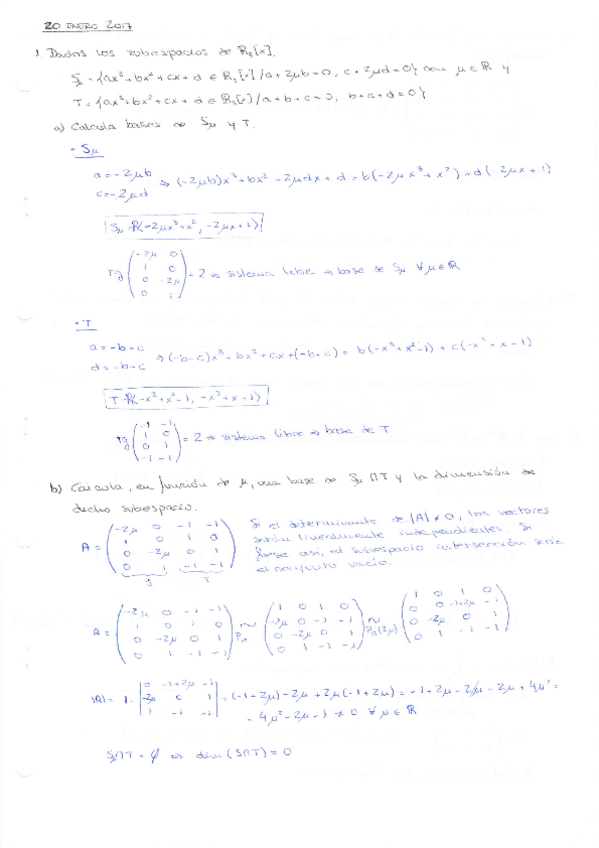 20 ENERO 2017
1. Dados los subespacios de R₃[x],
Sμ = {ax³+bx²+cx+d ∈ R₃[x] / a+2μb=0, c+2μd=0} con μ∈R y
T = {ax³+bx²+cx+d ∈ R₃[x] / a+b+c=0, b+c+d=0}
a) Calcula bases de Sμ y T.
- Sμ
a = -2μb
c = -2μd
⇒ (-2μb)x³+bx²-2μdx+d = b(-2μx³+x²)+d(2μx+1)
Sμ = R(-2μx³+x², -2μx+1)
rg
-2μ 0
1 0
0 -2μ
0 1
= 2 ⇒ sistema libre ⇒ base de Sμ ∀μ∈R
- T
a = -b-c
d = -b-c
⇒ (-b-c)x³+bx²+cx+(-b-c) = b(-x³+x²-1)+c(-x³+x-1)
T = R(-x³+x²-1, -x³+x-1)
rg
-1 -1
1 0
0 1
-1 -1
= 2 ⇒ sistema libre ⇒ base de T
b) Calcula, en función de μ, una base de Sμ ∩ T y la dimensión de
dicho subespacio.
A =
-2μ 0 -1 -1
1 0 1 0
0 -2μ 0 1
0 1 -1 -1
S T
Si el determinante de |A| ≠ 0, los vectores
serán linealmente independientes. Si
fuese así, el subespacio intersección sería
el conjunto vacío.
A =
-2μ 0 -1 -1
1 0 1 0
0 -2μ 0 1
0 1 -1 -1
~
1 0 1 0
-2μ 0 -1 -1
0 -2μ 0 1
0 1 -1 -1
~
1 0 1 0
0 0 -1+2μ -1
0 -2μ 0 1
0 1 -1 -1
|A| = 1·
0 -1+2μ -1
-2μ 0 1
1 -1 -1
= (-1+2μ)-2μ+2μ(-1+2μ) = -1+2μ-2μ-2μ+4μ² =
= 4μ²-2μ-1 ≠ 0 ∀μ∈R
Sμ∩T = ∅ dim(S∩T) = 0